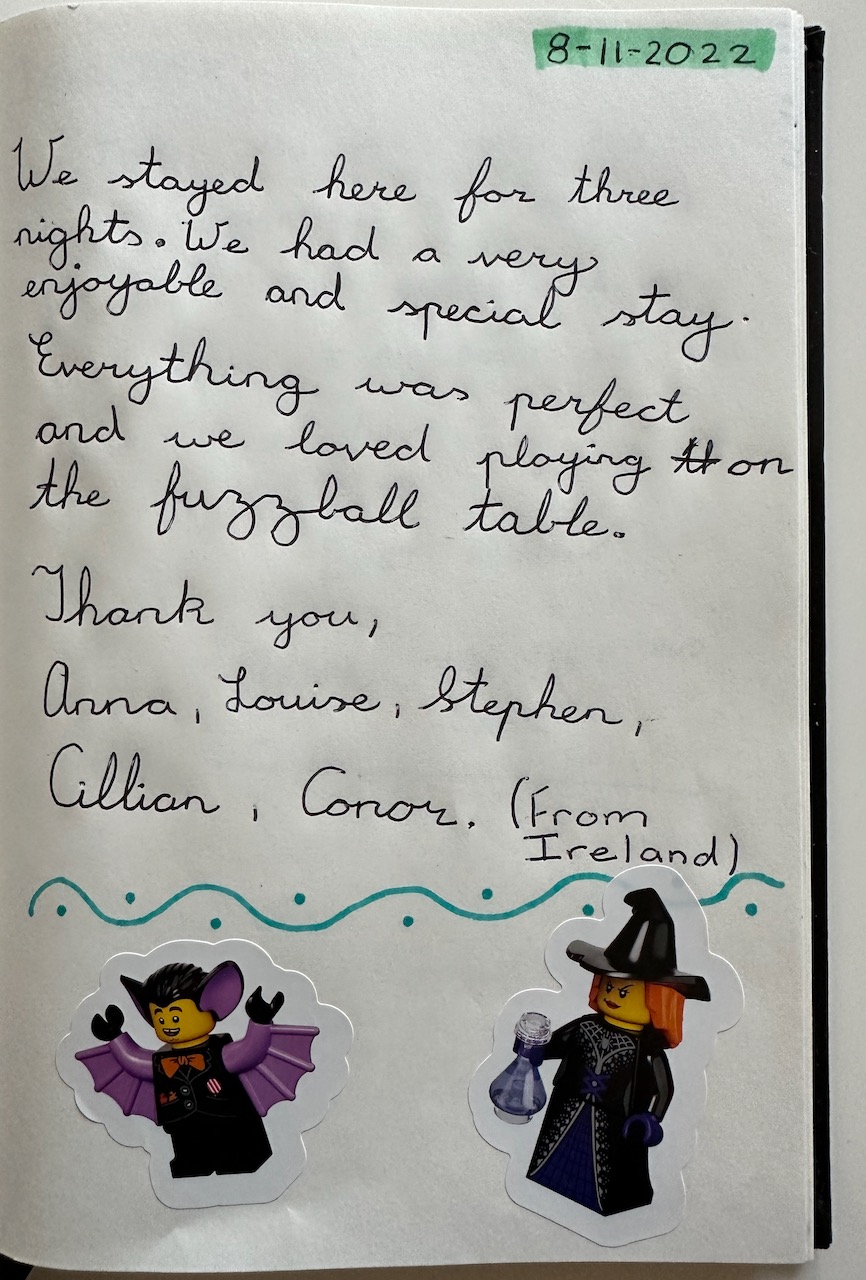 8-11-2022
We stayed here for three
nights. We had a very
enjoyable and special stay.
Everything was perfect
and we loved playing on
the fuzzball table.
Thank you,
Anna, Louise, Stephen,
Cillian, Conor. (From
Ireland)